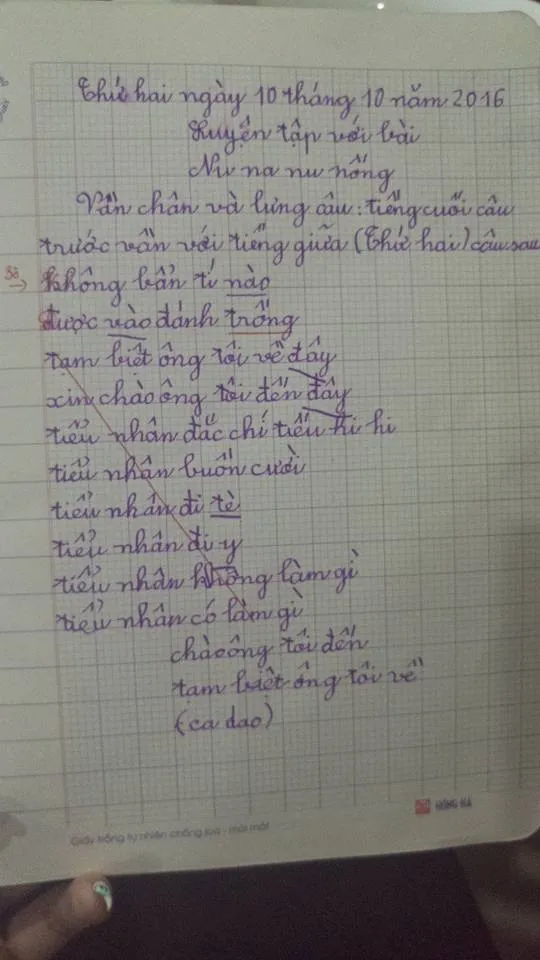 Thứ hai ngày 10 tháng 10 năm 2016
Luyện tập với bài
Nu na nu nống
Vần chân và lưng câu: tiếng cuối câu
trước vần với tiếng giữa (thứ hai) câu sau
không bẩn tí nào
được vào đánh trống
tạm biết ông tôi về đây
xin chào ông tôi đến đây
tiểu nhân đắc chí tiếu hi hi
tiểu nhân buồn cười
tiểu nhân đi tè
tiểu nhân đi y
tiểu nhân không làm gì
tiểu nhân có làm gì
chào ông tôi đến
tạm biệt ông tôi về
(ca dao)
HỒNG HÀ
Giấy trắng tự nhiên chống loá - mỏi mắt